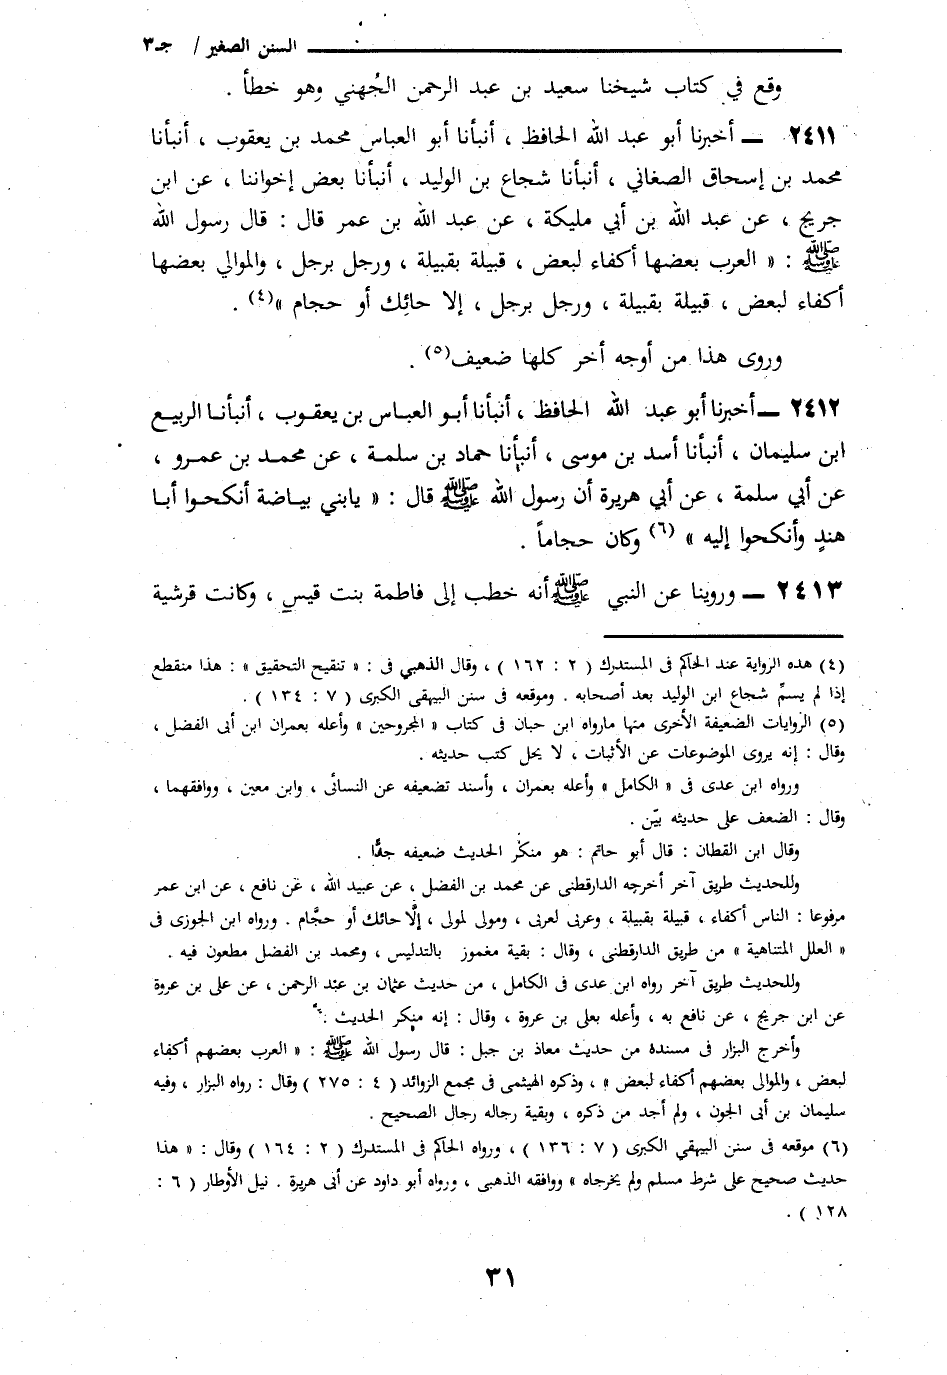 السنن الصغير / جـ٣
وقع في كتاب شيخنا سعيد بن عبد الرحمن الجُهني وهو خطأ .
٢٤١١ ــ أخبرنا أبو عبد الله الحافظ ، أنبأنا أبو العباس محمد بن يعقوب ، أنبأنا
محمد بن إسحاق الصغاني ، أنبأنا شجاع بن الوليد ، أنبأنا بعض إخواننا ، عن ابن
جريج ، عن عبد الله بن أبي مليكة ، عن عبد الله بن عمر قال : قال رسول الله
ﷺ : « العرب بعضها أكفاء لبعض ، قبيلة بقبيلة ، ورجل برجل ، والموالي بعضها
أكفاء لبعض ، قبيلة بقبيلة ، ورجل برجل ، إلا حائك أو حجام »(٤) .
وروى هذا من أوجه أخر كلها ضعيف(٥) .
٢٤١٢ ــ أخبرنا أبو عبد الله الحافظ ، أنبأنا أبو العباس بن يعقوب ، أنبأنا الربيع
ابن سليمان ، أنبأنا أسد بن موسى ، أنبأنا حماد بن سلمة ، عن محمد بن عمرو ،
عن أبي سلمة ، عن أبي هريرة أن رسول الله ﷺ قال : « يابني بياضة أنكحوا أبا
هندٍ وأنكحوا إليه » (٦) وكان حجاماً .
٢٤١٣ ــ وروينا عن النبي ﷺ أنه خطب إلى فاطمة بنت قيس ، وكانت قرشية
(٤) هذه الرواية عند الحاكم فى المستدرك ( ٢ : ١٦٢ ) ، وقال الذهبي فى : « تنقيح التحقيق » : هذا منقطع
إذا لم يسمِّ شجاع ابن الوليد بعد أصحابه . وموقعه فى سنن البيهقى الكبرى ( ٧ : ١٣٤ ) .
(٥) الروايات الضعيفة الأخرى منها مارواه ابن حبان فى كتاب « المجروحين » وأعله بعمران ابن أبى الفضل ،
وقال : إنه يروى الموضوعات عن الأثبات ، لا يحل كتب حديثه .
ورواه ابن عدى فى « الكامل » وأعله بعمران ، وأسند تضعيفه عن النسائى ، وابن معين ، ووافقهما ،
وقال : الضعف على حديثه بيّن .
وقال ابن القطان : قال أبو حاتم : هو منكر الحديث ضعيفه جدًّا .
وللحديث طريق آخر أخرجه الدارقطنى عن محمد بن الفضل ، عن عبيد الله ، عن نافع ، عن ابن عمر
مرفوعا : الناس أكفاء ، قبيلة بقبيلة ، وعربى لعربى ، ومولى لمولى ، إلَّا حائك أو حجَّام . ورواه ابن الجوزى فى
« العلل المتناهية » من طريق الدارقطنى ، وقال : بقية مغموز بالتدليس ، ومحمد بن الفضل مطعون فيه .
وللحديث طريق آخر رواه ابن عدى فى الكامل ، من حديث عثمان بن عبد الرحمن ، عن على بن عروة
عن ابن جريج ، عن نافع به ، وأعله بعلى بن عروة ، وقال : إنه منكر الحديث .
وأخرج البزار فى مسنده من حديث معاذ بن جبل : قال رسول الله ﷺ : « العرب بعضهم أكفاء
لبعض ، والموالى بعضهم أكفاء لبعض » ، وذكره الهيثمى فى مجمع الزوائد ( ٤ : ٢٧٥ ) وقال : رواه البزار ، وفيه
سليمان بن أبى الجون ، ولم أجد من ذكره ، وبقية رجاله رجال الصحيح .
(٦) موقعه فى سنن البيهقي الكبرى ( ٧ : ١٣٦ ) ، ورواه الحاكم فى المستدرك ( ٢ : ١٦٤ ) وقال : « هذا
حديث صحيح على شرط مسلم ولم يخرجاه » ووافقه الذهبى ، ورواه أبو داود عن أبى هريرة . نيل الأوطار ( ٦ :
١٢٨ ) .
٣١